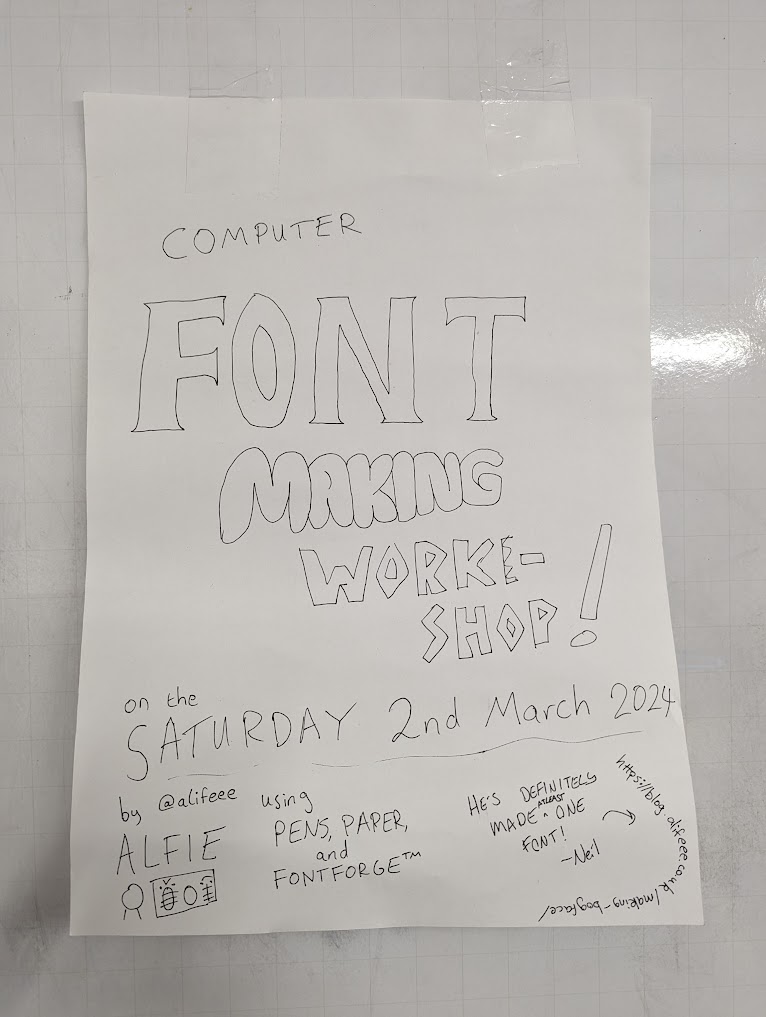 COMPUTER
FONT
MAKING
WORKE-
SHOP!
on the
SATURDAY 2nd March 2024
by @alifeee
ALFIE
using
PENS, PAPER,
and
FONTFORGE™
HE'S DEFINITELY
ATLEAST
MADE ^ ONE
FONT!
-Neil
https://blog.alifeee.co.uk/making-bogface/